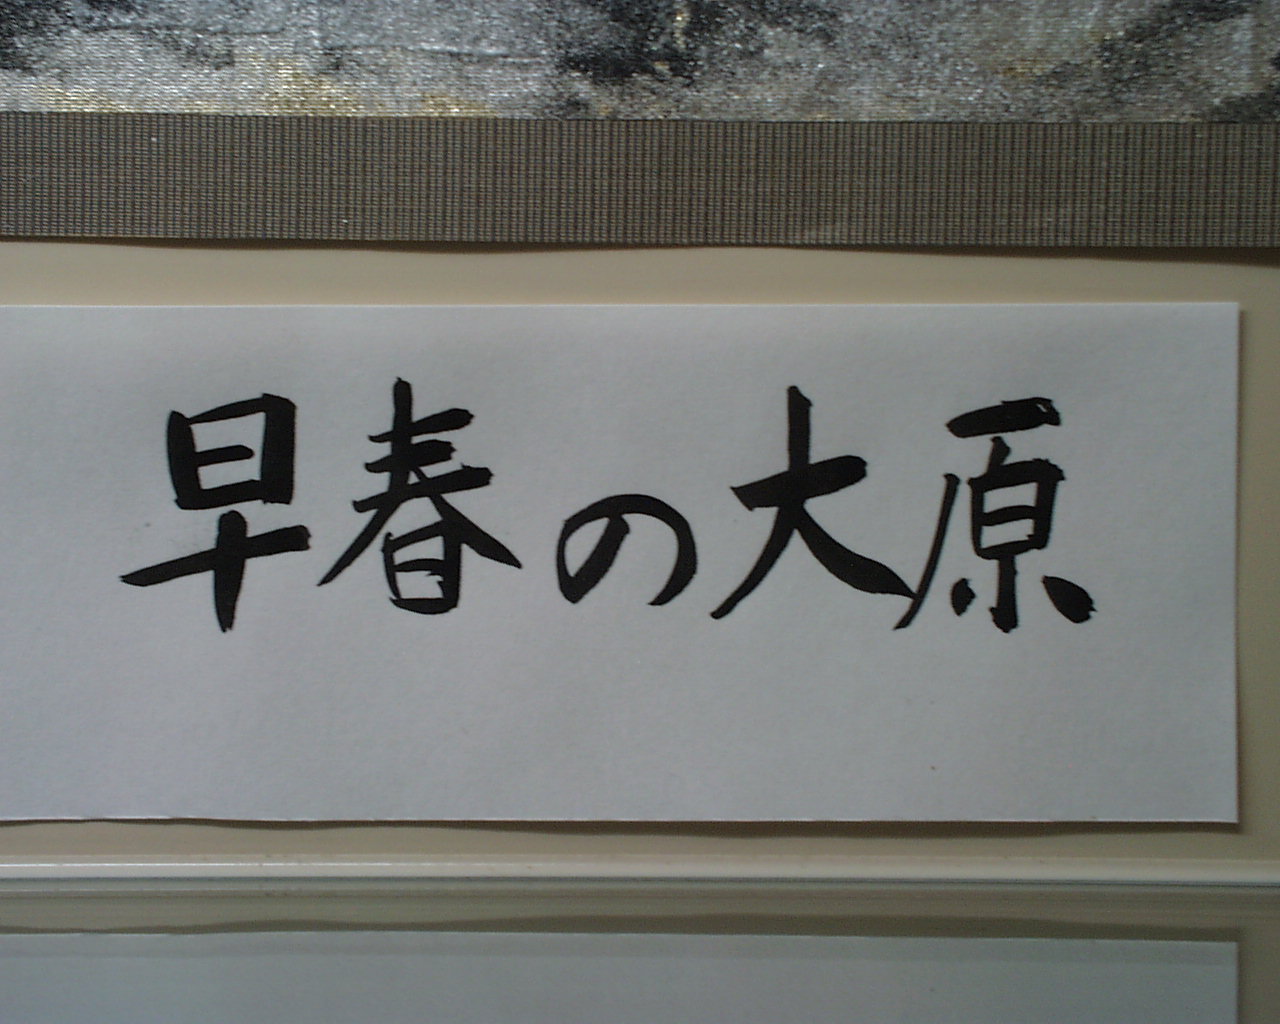 早春の大原